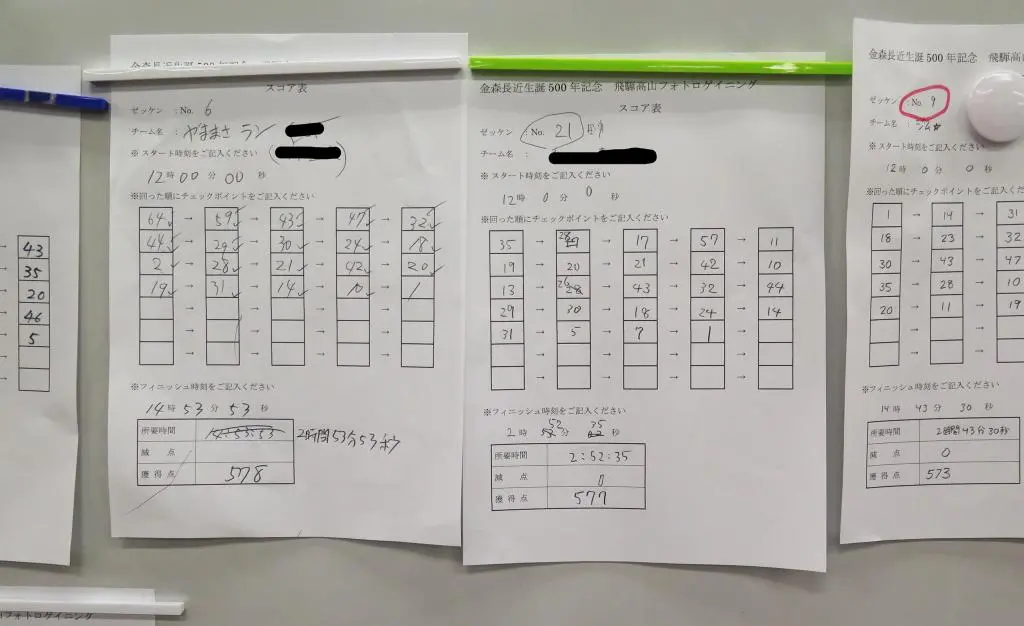 43
35
20
46
5
フォトロゲイニング
スコア表
ゼッケン :No. 6
チーム名 : やままさ ラン
※ スタート時刻をご記入ください
12時 00 分 00 秒
※回った順にチェックポイントをご記入ください
64 → 59 → 43 → 47 → 32
44 → 29 → 30 → 24 → 18
2 → 28 → 21 → 42 → 20
19 → 31 → 14 → 10 → 1
※フィニッシュ時刻をご記入ください
14時 53 分 53 秒
所要時間 14:53:53 2時間53分53秒
減 点
獲得点 578
金森長近生誕500年記念 飛騨高山フォトロゲイニング
スコア表
ゼッケン :No. 21
チーム名 :
※ スタート時刻をご記入ください
12時 0分 0 秒
※回った順にチェックポイントをご記入ください
35 → 28 → 17 → 57 → 11
19 → 20 → 21 → 42 → 10
13 → 26 → 43 → 32 → 44
29 → 30 → 18 → 24 → 14
31 → 5 → 7 → 1
※フィニッシュ時刻をご記入ください
2時 52分 35秒
所要時間 2:52:35
減 点 0
獲得点 577
金森長近生誕500年記念 飛騨高山
ゼッケン :No. 9
チーム名 : ジム☆
※ スタート時刻をご記入ください
12時 0分 0秒
※回った順にチェックポイントをご記入くださ
1 → 14 → 31
18 → 23 → 32
30 → 43 → 47
35 → 28 → 10
20 → 11 → 19
※フィニッシュ時刻をご記入ください
14時 43分 30秒
所要時間 2時間43分30秒
減 点 0
獲得点 573